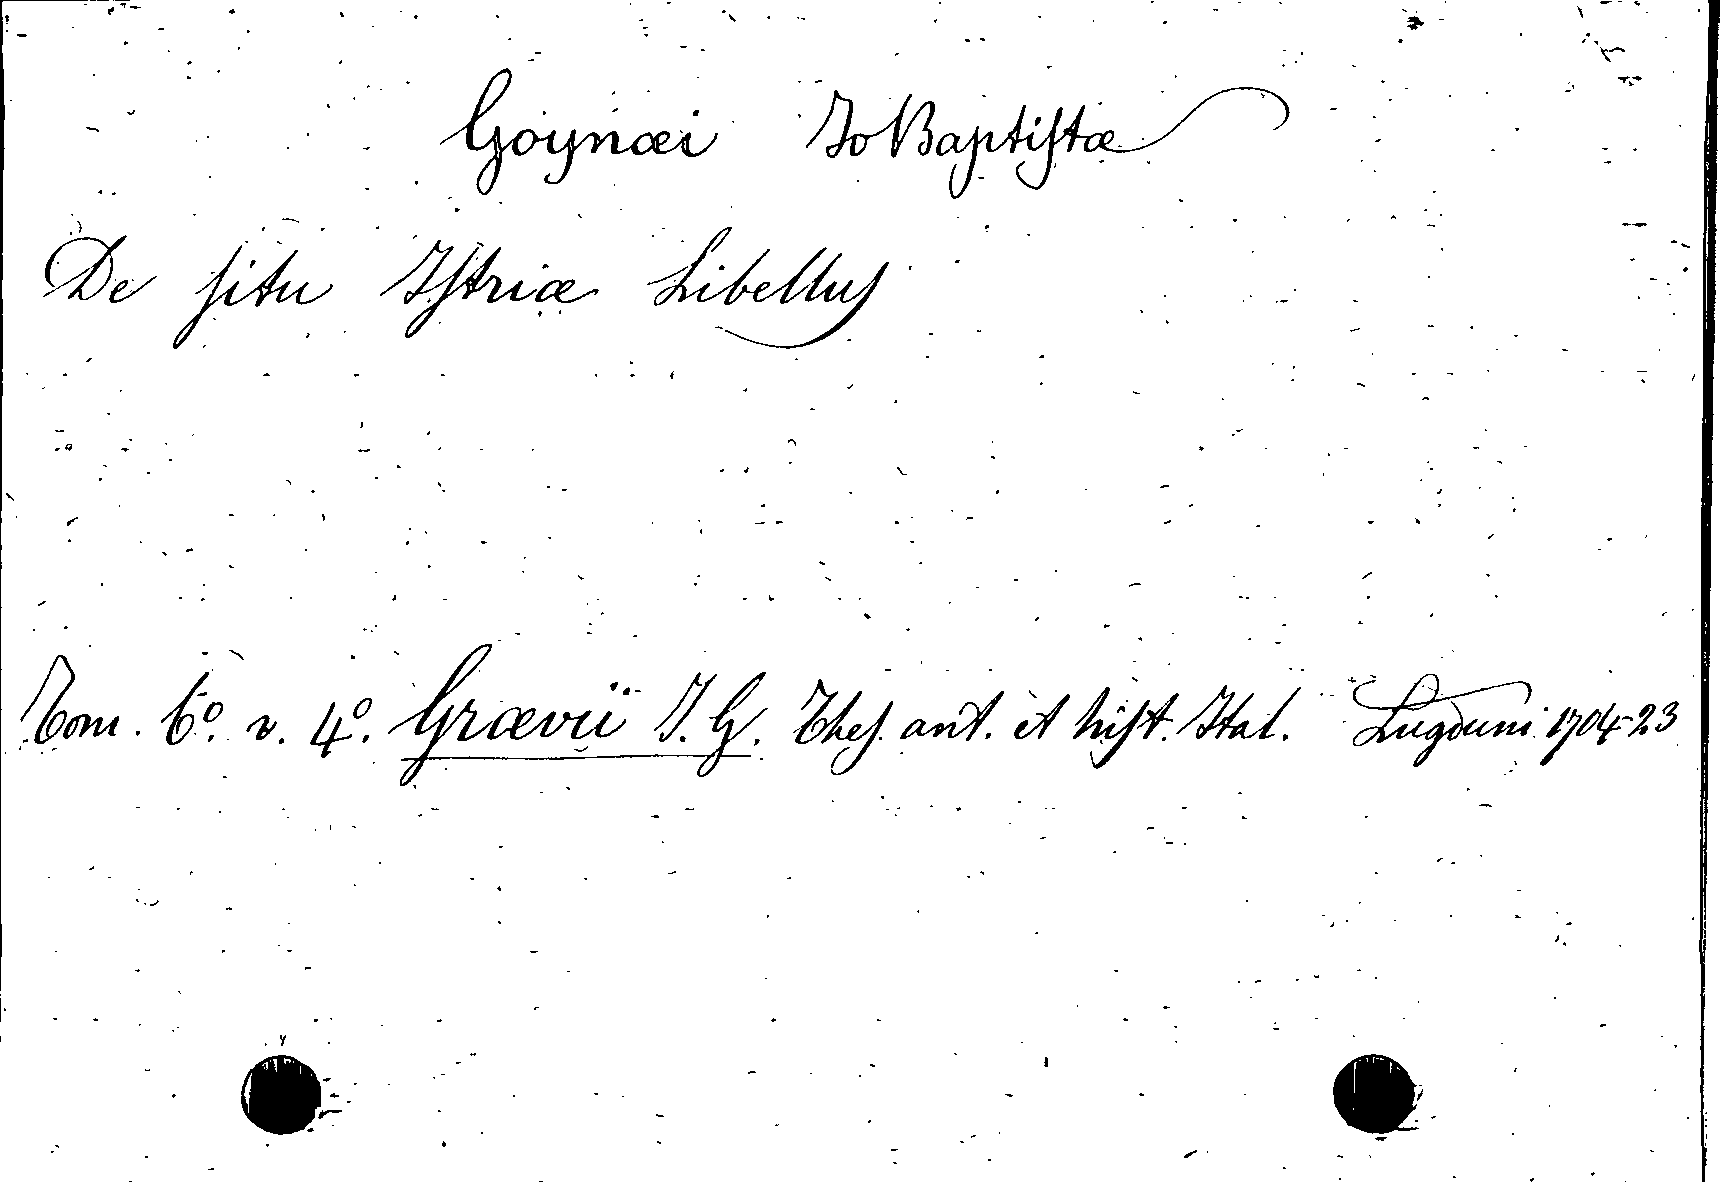 Goynæi Jo Baptiſtæ
De ſitu Iſtriæ Libelluſ
Tom. 6º. v. 4º. Grævii J. G. Theſ. ant. et hiſt. Ital. Lugduni 1704-23